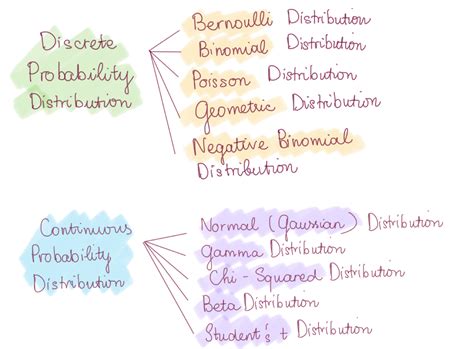 Discrete
Probability
Distribution
Bernoulli Distribution
Binomial Distribution
Poisson Distribution
Geometric Distribution
Negative Binomial
Distribution
Continuous
Probability
Distribution
Normal (Gaussian) Distribution
Gamma Distribution
Chi - Squared Distribution
Beta Distribution
Student's t Distribution